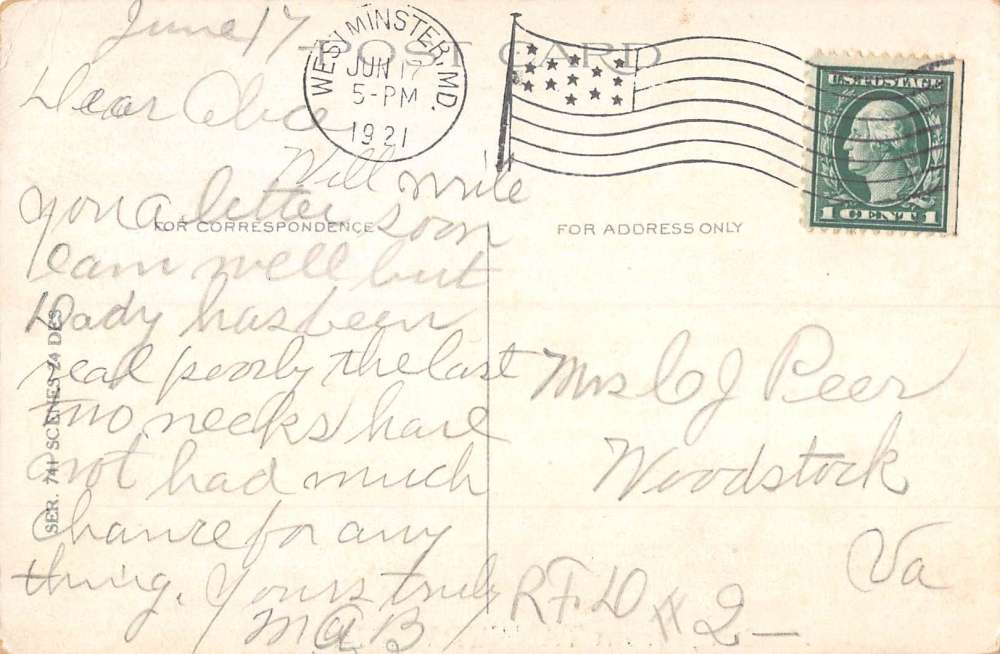 June 17
POST CARD
WESTMINSTER, MD.
JUN 17
5-PM
1921
U.S. POSTAGE
1 CENT 1
Dear
Will write
you a letter soon
FOR CORRESPONDENCE
I am well but
Dady has been
real poorly the last
two weeks have
not had much
chance for any
thing. Yours truly
M A B
SER. 741 SCENES 24 DES
FOR ADDRESS ONLY
Mrs C J Peer
Woodstock
Va
R F D # 2